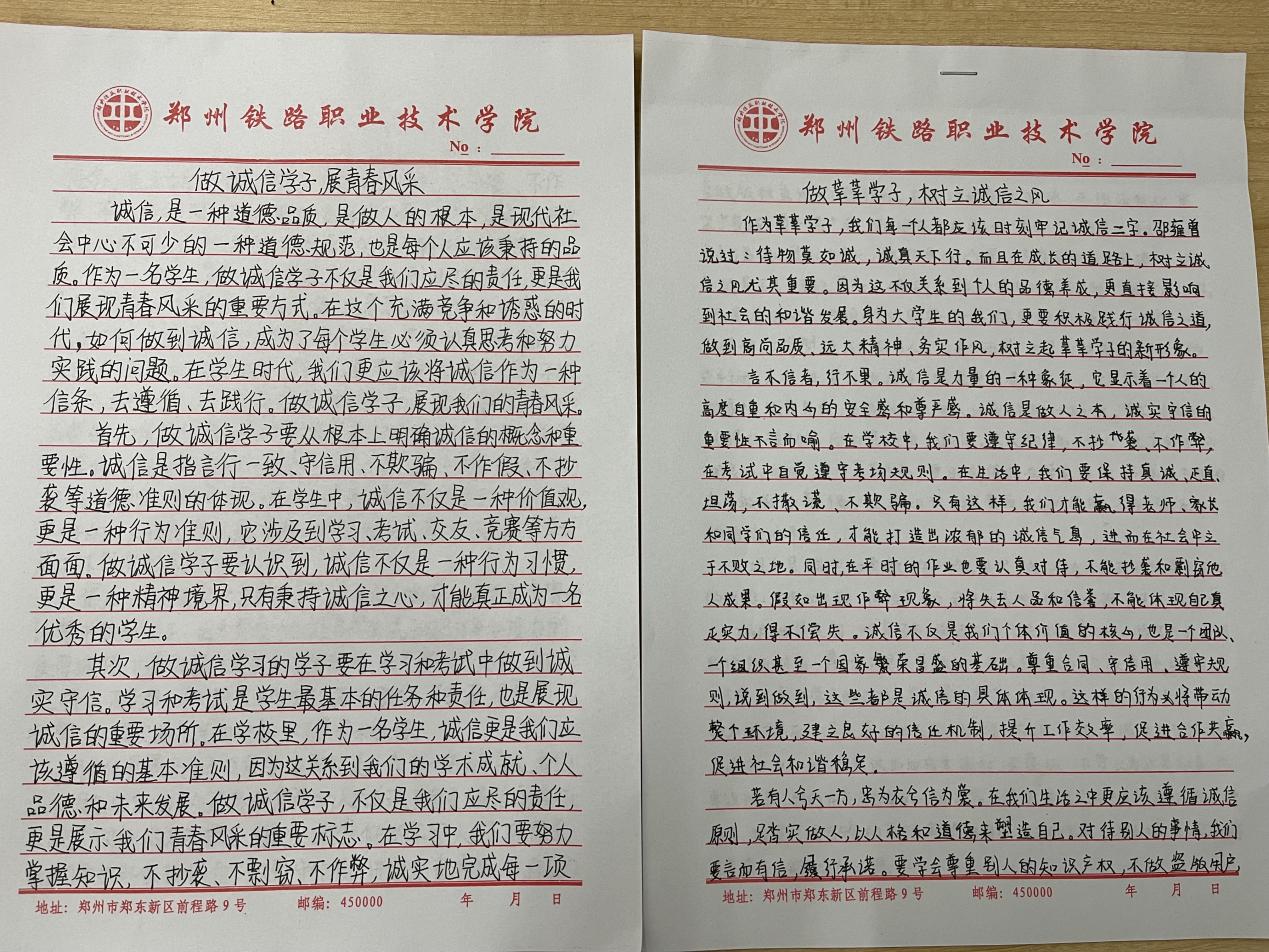 郑州铁路职业技术学院
No：
做诚信学子,展青春风采
诚信,是一种道德品质,是做人的根本,是现代社
会中心不可少的一种道德规范,也是每个人应该秉持的品
质。作为一名学生,做诚信学子不仅是我们应尽的责任,更是我
们展现青春风采的重要方式。在这个充满竞争和诱惑的时
代,如何做到诚信,成为了每个学生必须认真思考和努力
实践的问题。在学生时代,我们更应该将诚信作为一种
信条,去遵循、去践行。做诚信学子,展现我们的青春风采。
首先,做诚信学子要从根本上明确诚信的概念和重
要性。诚信是指言行一致、守信用、不欺骗、不作假、不抄
袭等道德准则的体现。在学生中,诚信不仅是一种价值观,
更是一种行为准则,它涉及到学习、考试、交友、竞赛等方方
面面。做诚信学子要认识到,诚信不仅是一种行为习惯,
更是一种精神境界,只有秉持诚信之心,才能真正成为一名
优秀的学生。
其次,做诚信学习的学子要在学习和考试中做到诚
实守信。学习和考试是学生最基本的任务和责任,也是展现
诚信的重要场所。在学校里,作为一名学生,诚信更是我们应
该遵循的基本准则,因为这关系到我们的学术成就、个人
品德和未来发展。做诚信学子,不仅是我们应尽的责任,
更是展示我们青春风采的重要标志。在学习中,我们要努力
掌握知识,不抄袭、不剽窃、不作弊,诚实地完成每一项
地址：郑州市郑东新区前程路9号 邮编：450000 年 月 日
郑州铁路职业技术学院
No：
做莘莘学子,树立诚信之风
作为莘莘学子,我们每一个人都应该时刻牢记诚信二字。邵雍曾
说过：待物莫如诚,诚真天下行。而且在成长的道路上,树立诚
信之风尤其重要。因为这不仅关系到个人的品德养成,更直接影响
到社会的和谐发展。身为大学生的我们,更要积极践行诚信之道,
做到高尚品质、远大精神、务实作风,树立起莘莘学子的新形象。
言不信者,行不果。诚信是力量的一种象征,它显示着一个人的
高度自重和内心的安全感和尊严感。诚信是做人之本,诚实守信的
重要性不言而喻。在学校中,我们要遵守纪律,不抄袭、不作弊,
在考试中自觉遵守考场规则。在生活中,我们要保持真诚、正直、
坦荡,不撒谎、不欺骗。只有这样,我们才能赢得老师、家长
和同学们的信任,才能打造出浓郁的诚信气息,进而在社会中立
于不败之地。同时,在平时的作业也要认真对待,不能抄袭和剽窃他
人成果。假如出现作弊现象,将失去人品和信誉,不能体现自己真
正实力,得不偿失。诚信不仅是我们个体价值的核心,也是一个团队、
一个组织甚至一个国家繁荣昌盛的基础。尊重合同、守信用、遵守规
则,说到做到,这些都是诚信的具体体现。这样的行为必将带动
整个环境,建立良好的信任机制,提升工作效率,促进合作共赢,
促进社会和谐稳定。
若有人兮天一方,忠为衣兮信为裳。在我们生活之中更应该遵循诚信
原则,踏实做人,以人格和道德来塑造自己。对待别人的事情,我们
要言而有信,履行承诺。要学会尊重别人的知识产权,不做盗版用户,
地址：郑州市郑东新区前程路9号 邮编：450000 年 月 日